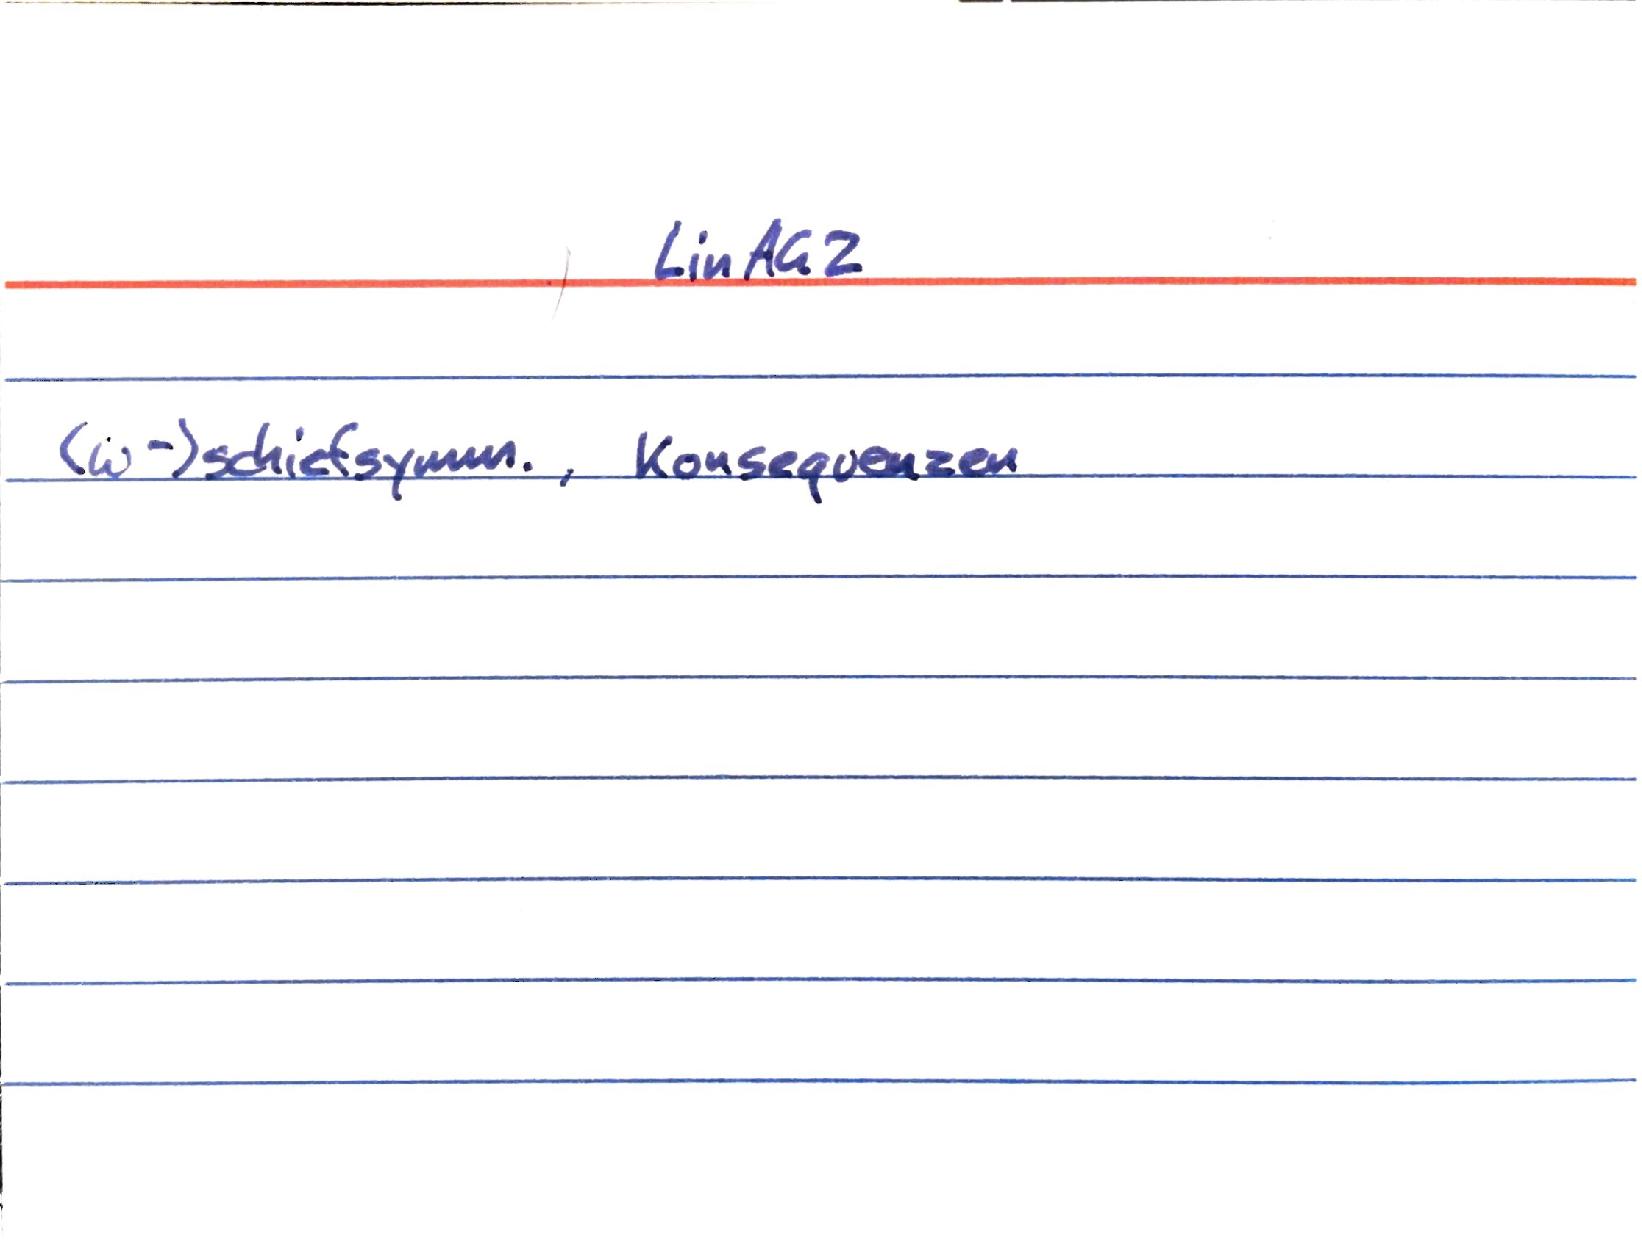 LinAG 2
(ω-)schiefsymm., Konsequenzen